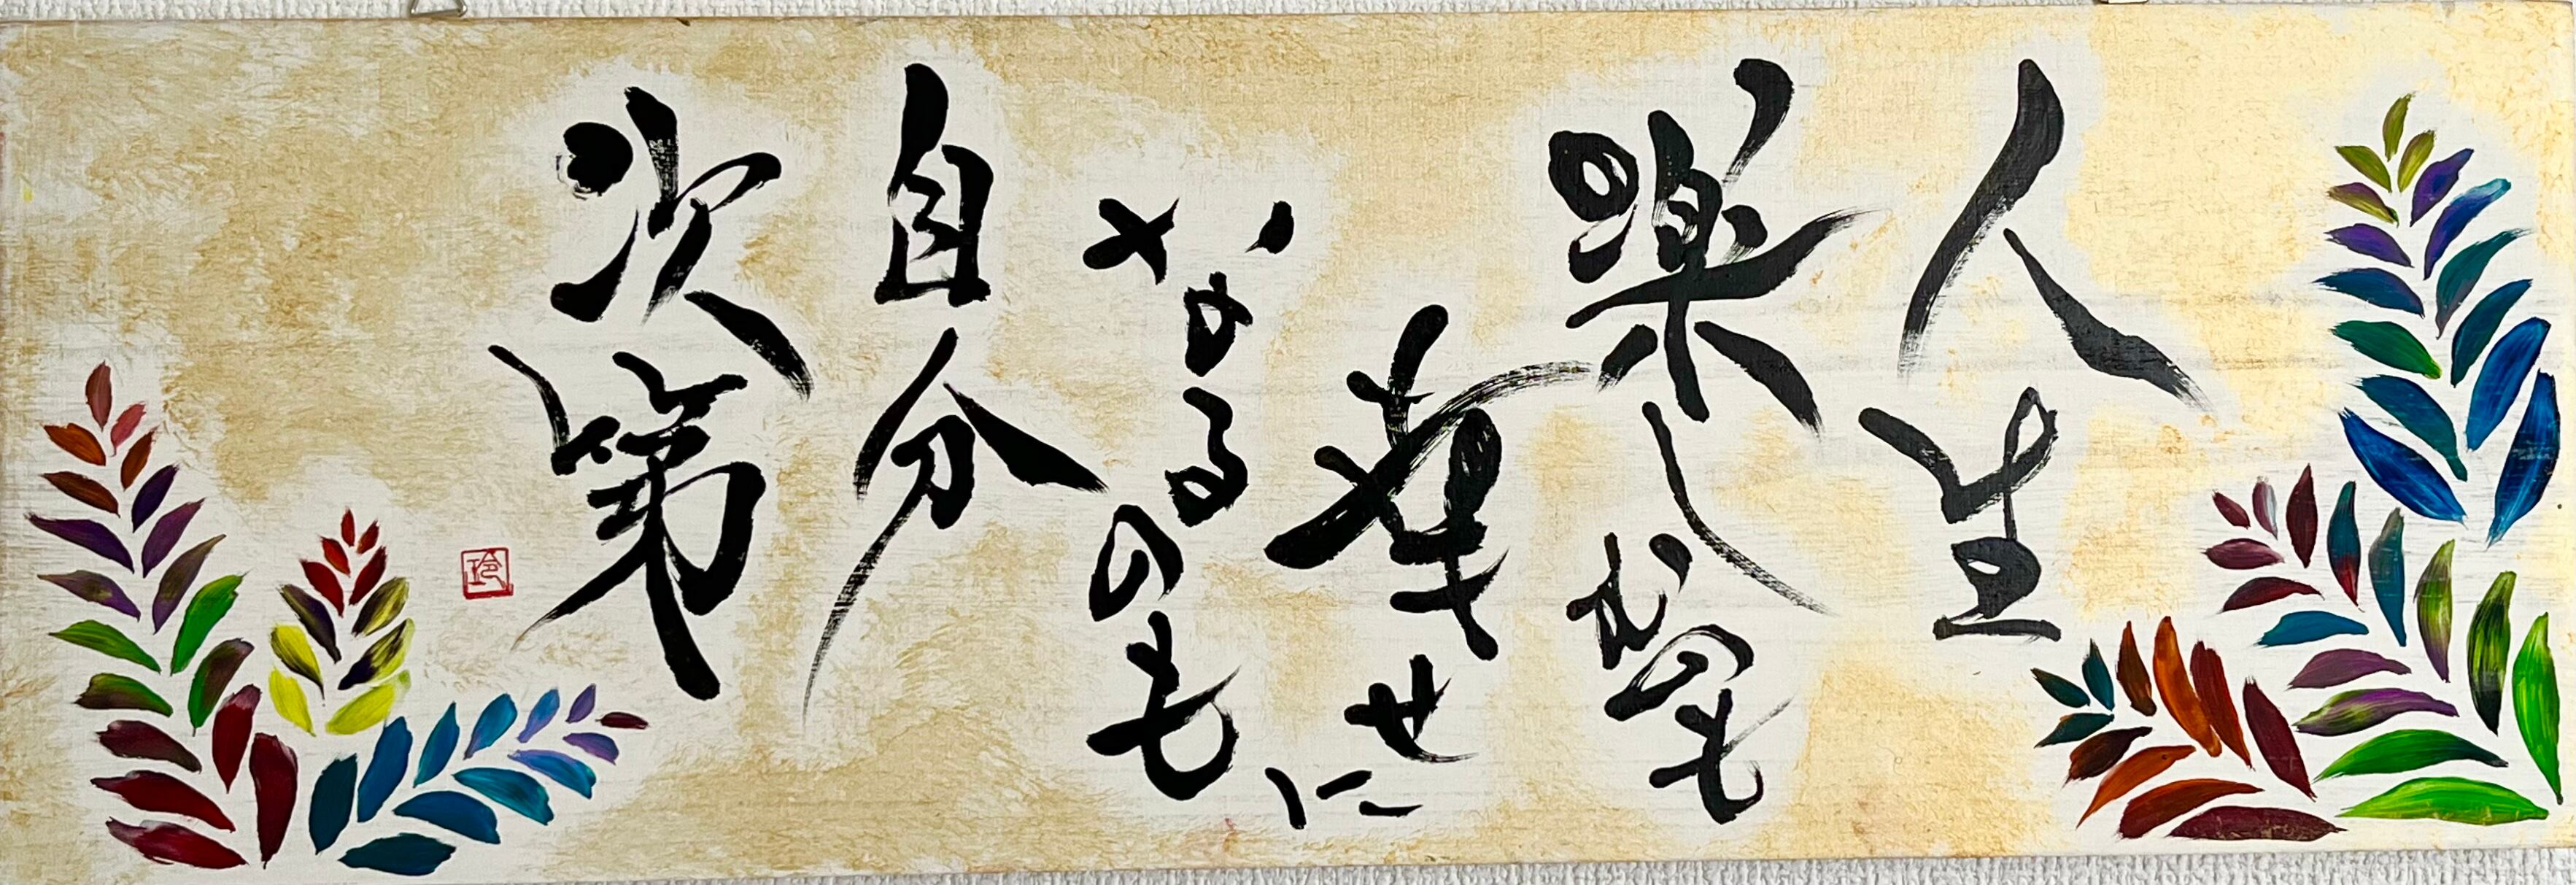 人生
楽しむのも
幸せに
なるのも
自分
次第
玲